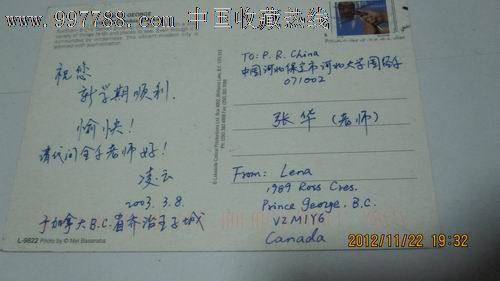 www.997788.com 中国收藏热线
GEORGE
祝您
新学期顺利,
愉快!
请代问全手老师好!
凌云
2003.3.8.
于加拿大B.C.省乔治王子城
L-9822 Photo by © Mel Basaraba
TO: P.R. China
中国河北保定市河北大学
071002
张华(老师)
From: Lena
1989 Ross Cres.
Prince George, B.C.
V2M1Y6
Canada
2012/11/22 19:32